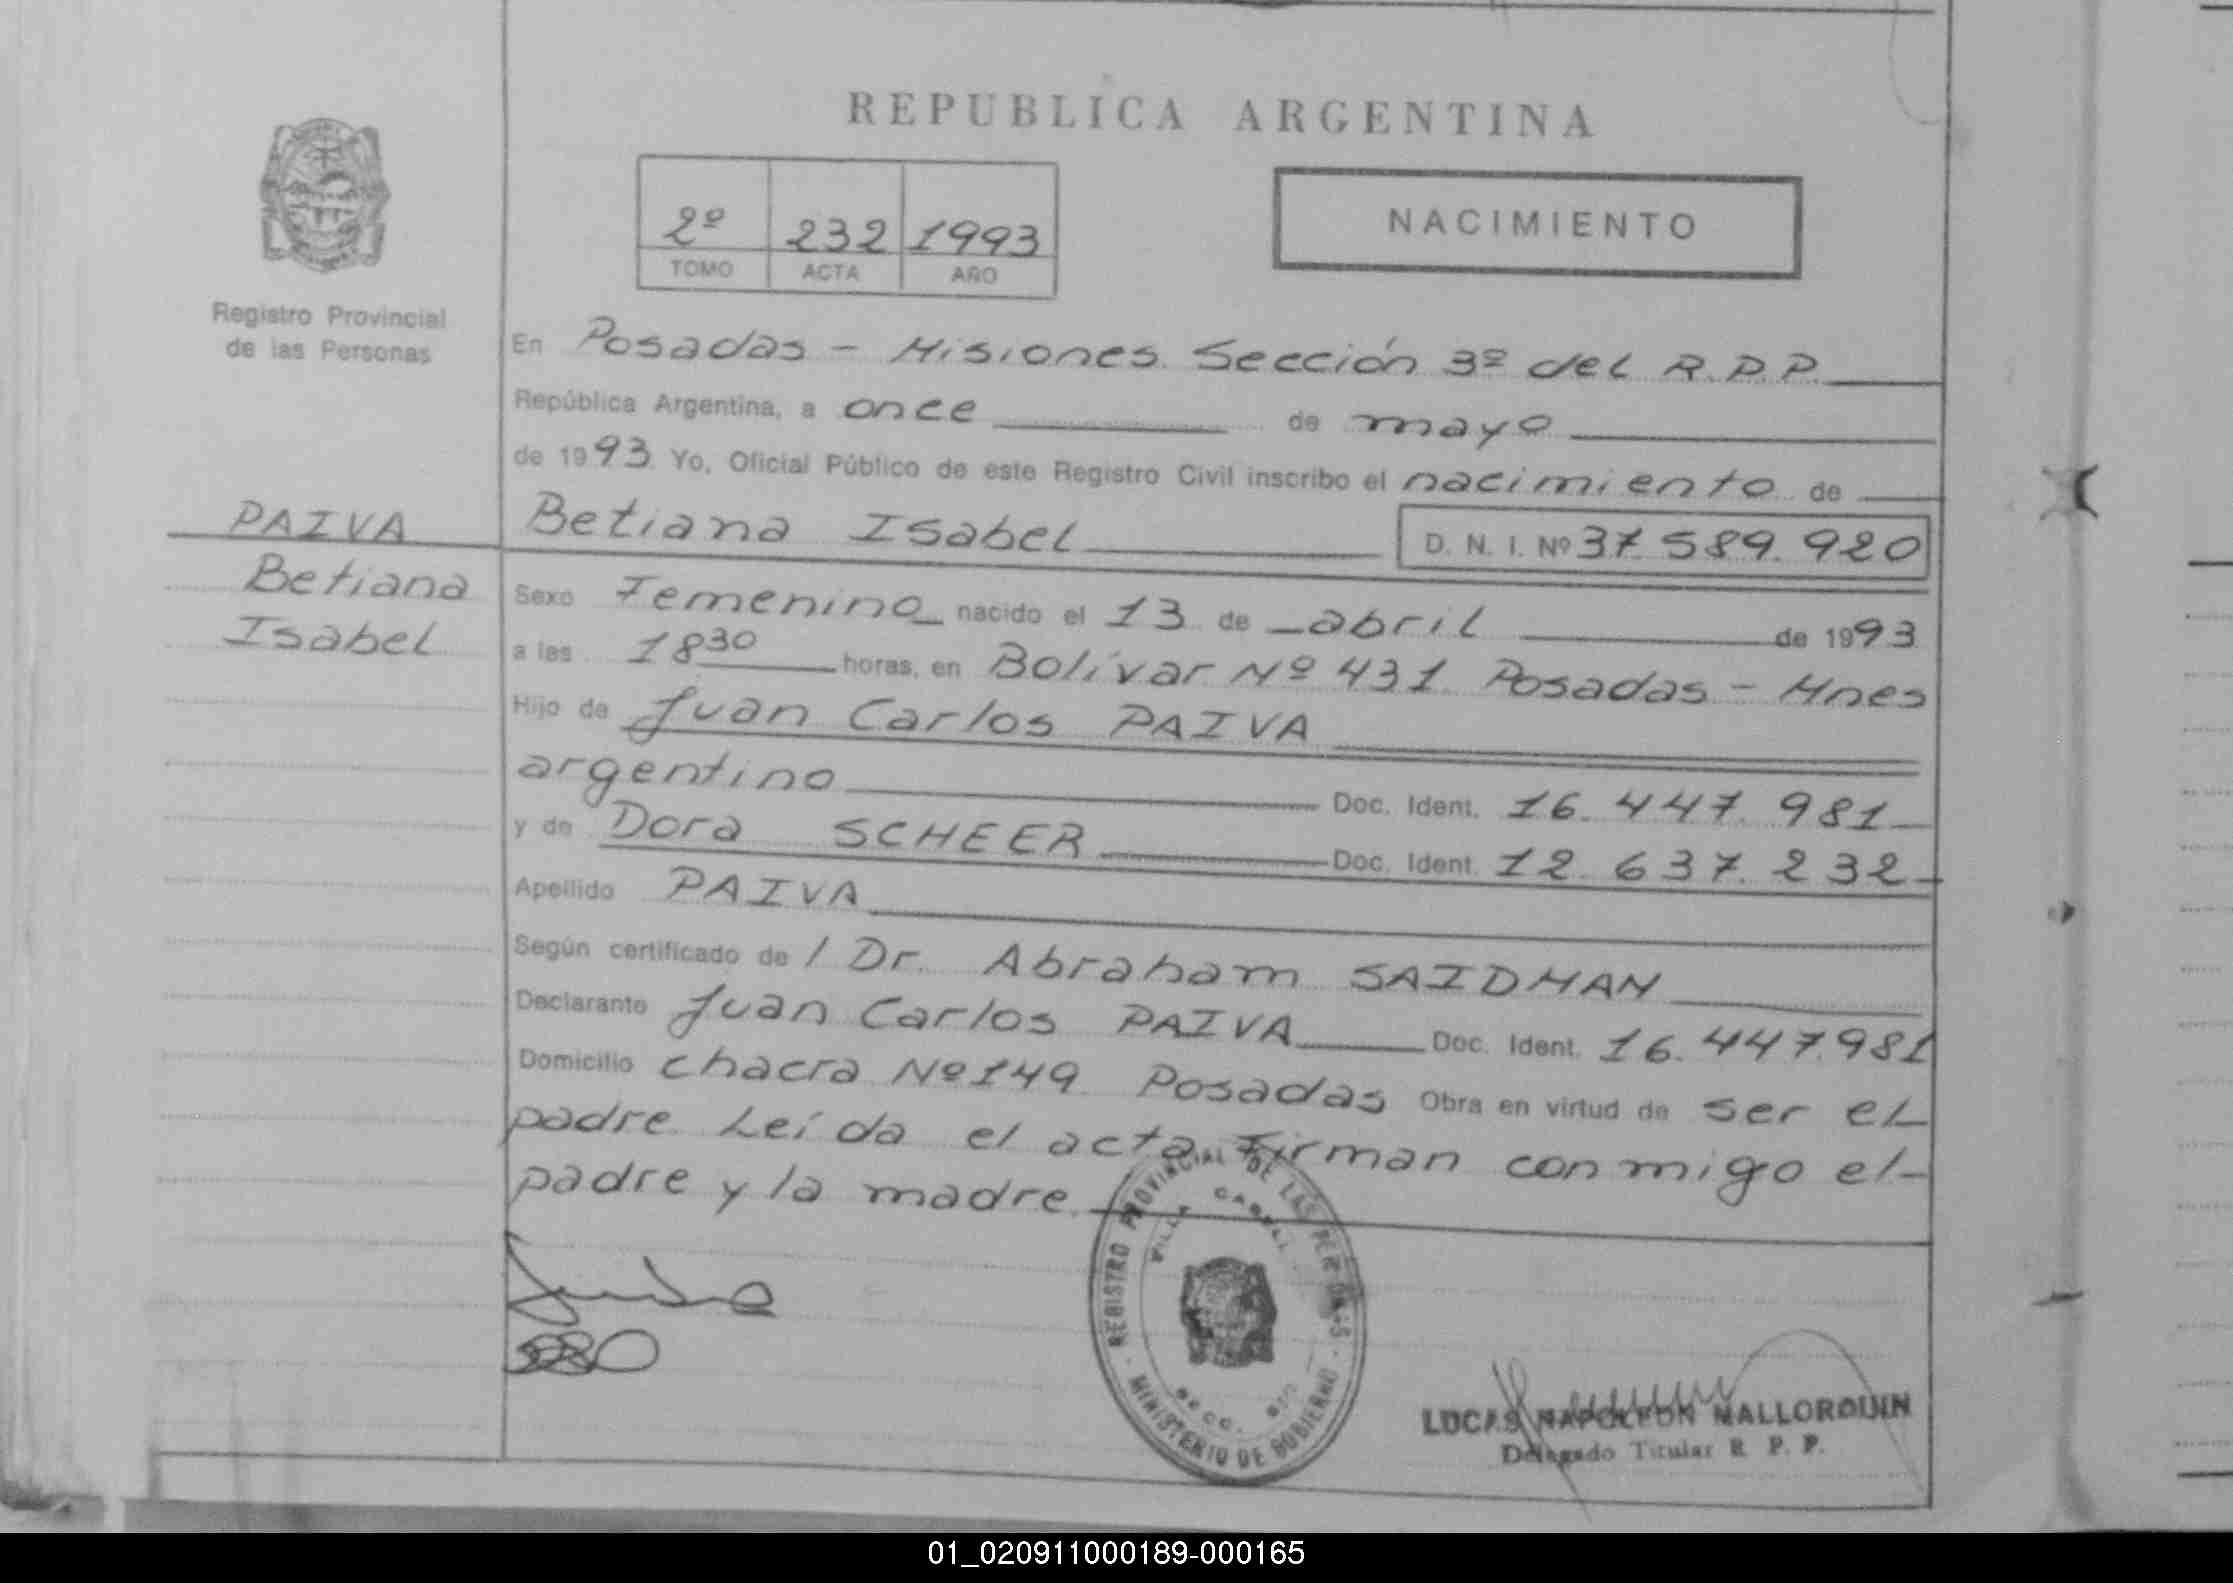 REPUBLICA ARGENTINA
2º 232 1993
TOMO ACTA AÑO
NACIMIENTO
Registro Provincial
de las Personas
En Posadas - Misiones. Sección 3º del R.P.P.
República Argentina, a once de mayo
de 1993. Yo, Oficial Público de este Registro Civil inscribo el nacimiento de
PAIVA
Betiana
Isabel
Betiana Isabel D. N. I. Nº 37.589.920
Sexo Femenino nacido el 13 de abril de 1993
a las 18 30 horas, en Bolívar Nº 431. Posadas - Mnes
Hijo de Juan Carlos PAIVA
argentino Doc. Ident. 16.447.981
y de Dora SCHEER Doc. Ident. 12.637.232
Apellido PAIVA
Según certificado de / Dr. Abraham SAIDMAN
Declarante Juan Carlos PAIVA Doc. Ident. 16.447.981
Domicilio chacra Nº 149. Posadas Obra en virtud de ser el
padre. Leída el acta firman conmigo el-
padre y la madre.
REGISTRO PROVINCIAL DE LAS PERSONAS
VILLA CABELLO
SECC.
MINISTERIO DE GOBIERNO
LUCAS NAPOLEON MALLORQUIN
Delegado Titular R. P. P.
01_020911000189-000165